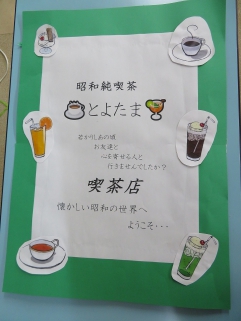 昭和純喫茶
とよたま
若かりしあの頃
お友達と
心を寄せる人と
行きませんでしたか？
喫茶店
懐かしい昭和の世界へ
ようこそ・・・